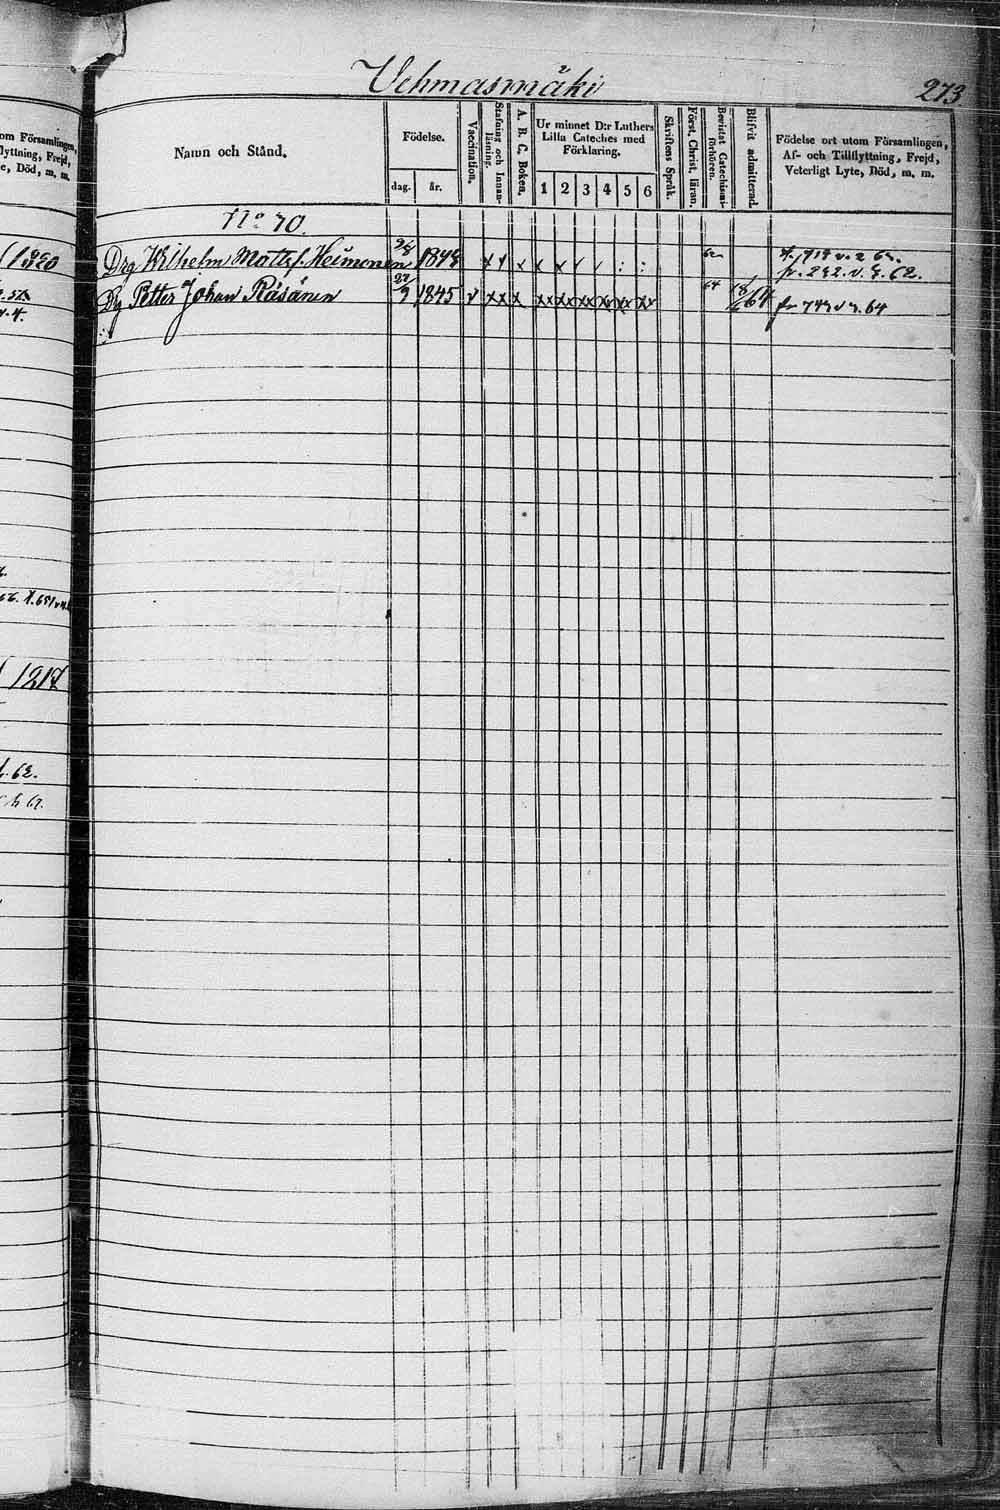 Vehmasmäki
273
om Församlingen,
flyttning, Frejd,
e, Död, m. m.
Namn och Stånd.
Födelse.
dag.
år.
Vaccination.
Stafning och Innan-
läsning.
A. B. C. Boken.
Ur minnet D:r Luthers
Lilla Cateches med
Förklaring.
1 2 3 4 5 6
Skriftens Språk.
Först. Christ. läran.
Bevistat Catechismi-
förhören.
Blifvit admitterad.
Födelse ort utom Församlingen,
Af- och Tillflyttning, Frejd,
Veterligt Lyte, Död, m. m.
No 70.
Drg Wilhelm Matts f. Heimonen 1848 x x x x x
fr. 292. v. 4. 62.
Dg Petter Johan Räsänen 1845 v xx x xx xx xx xx xx xx 64 fr 743 v 3. 64
1217
62.